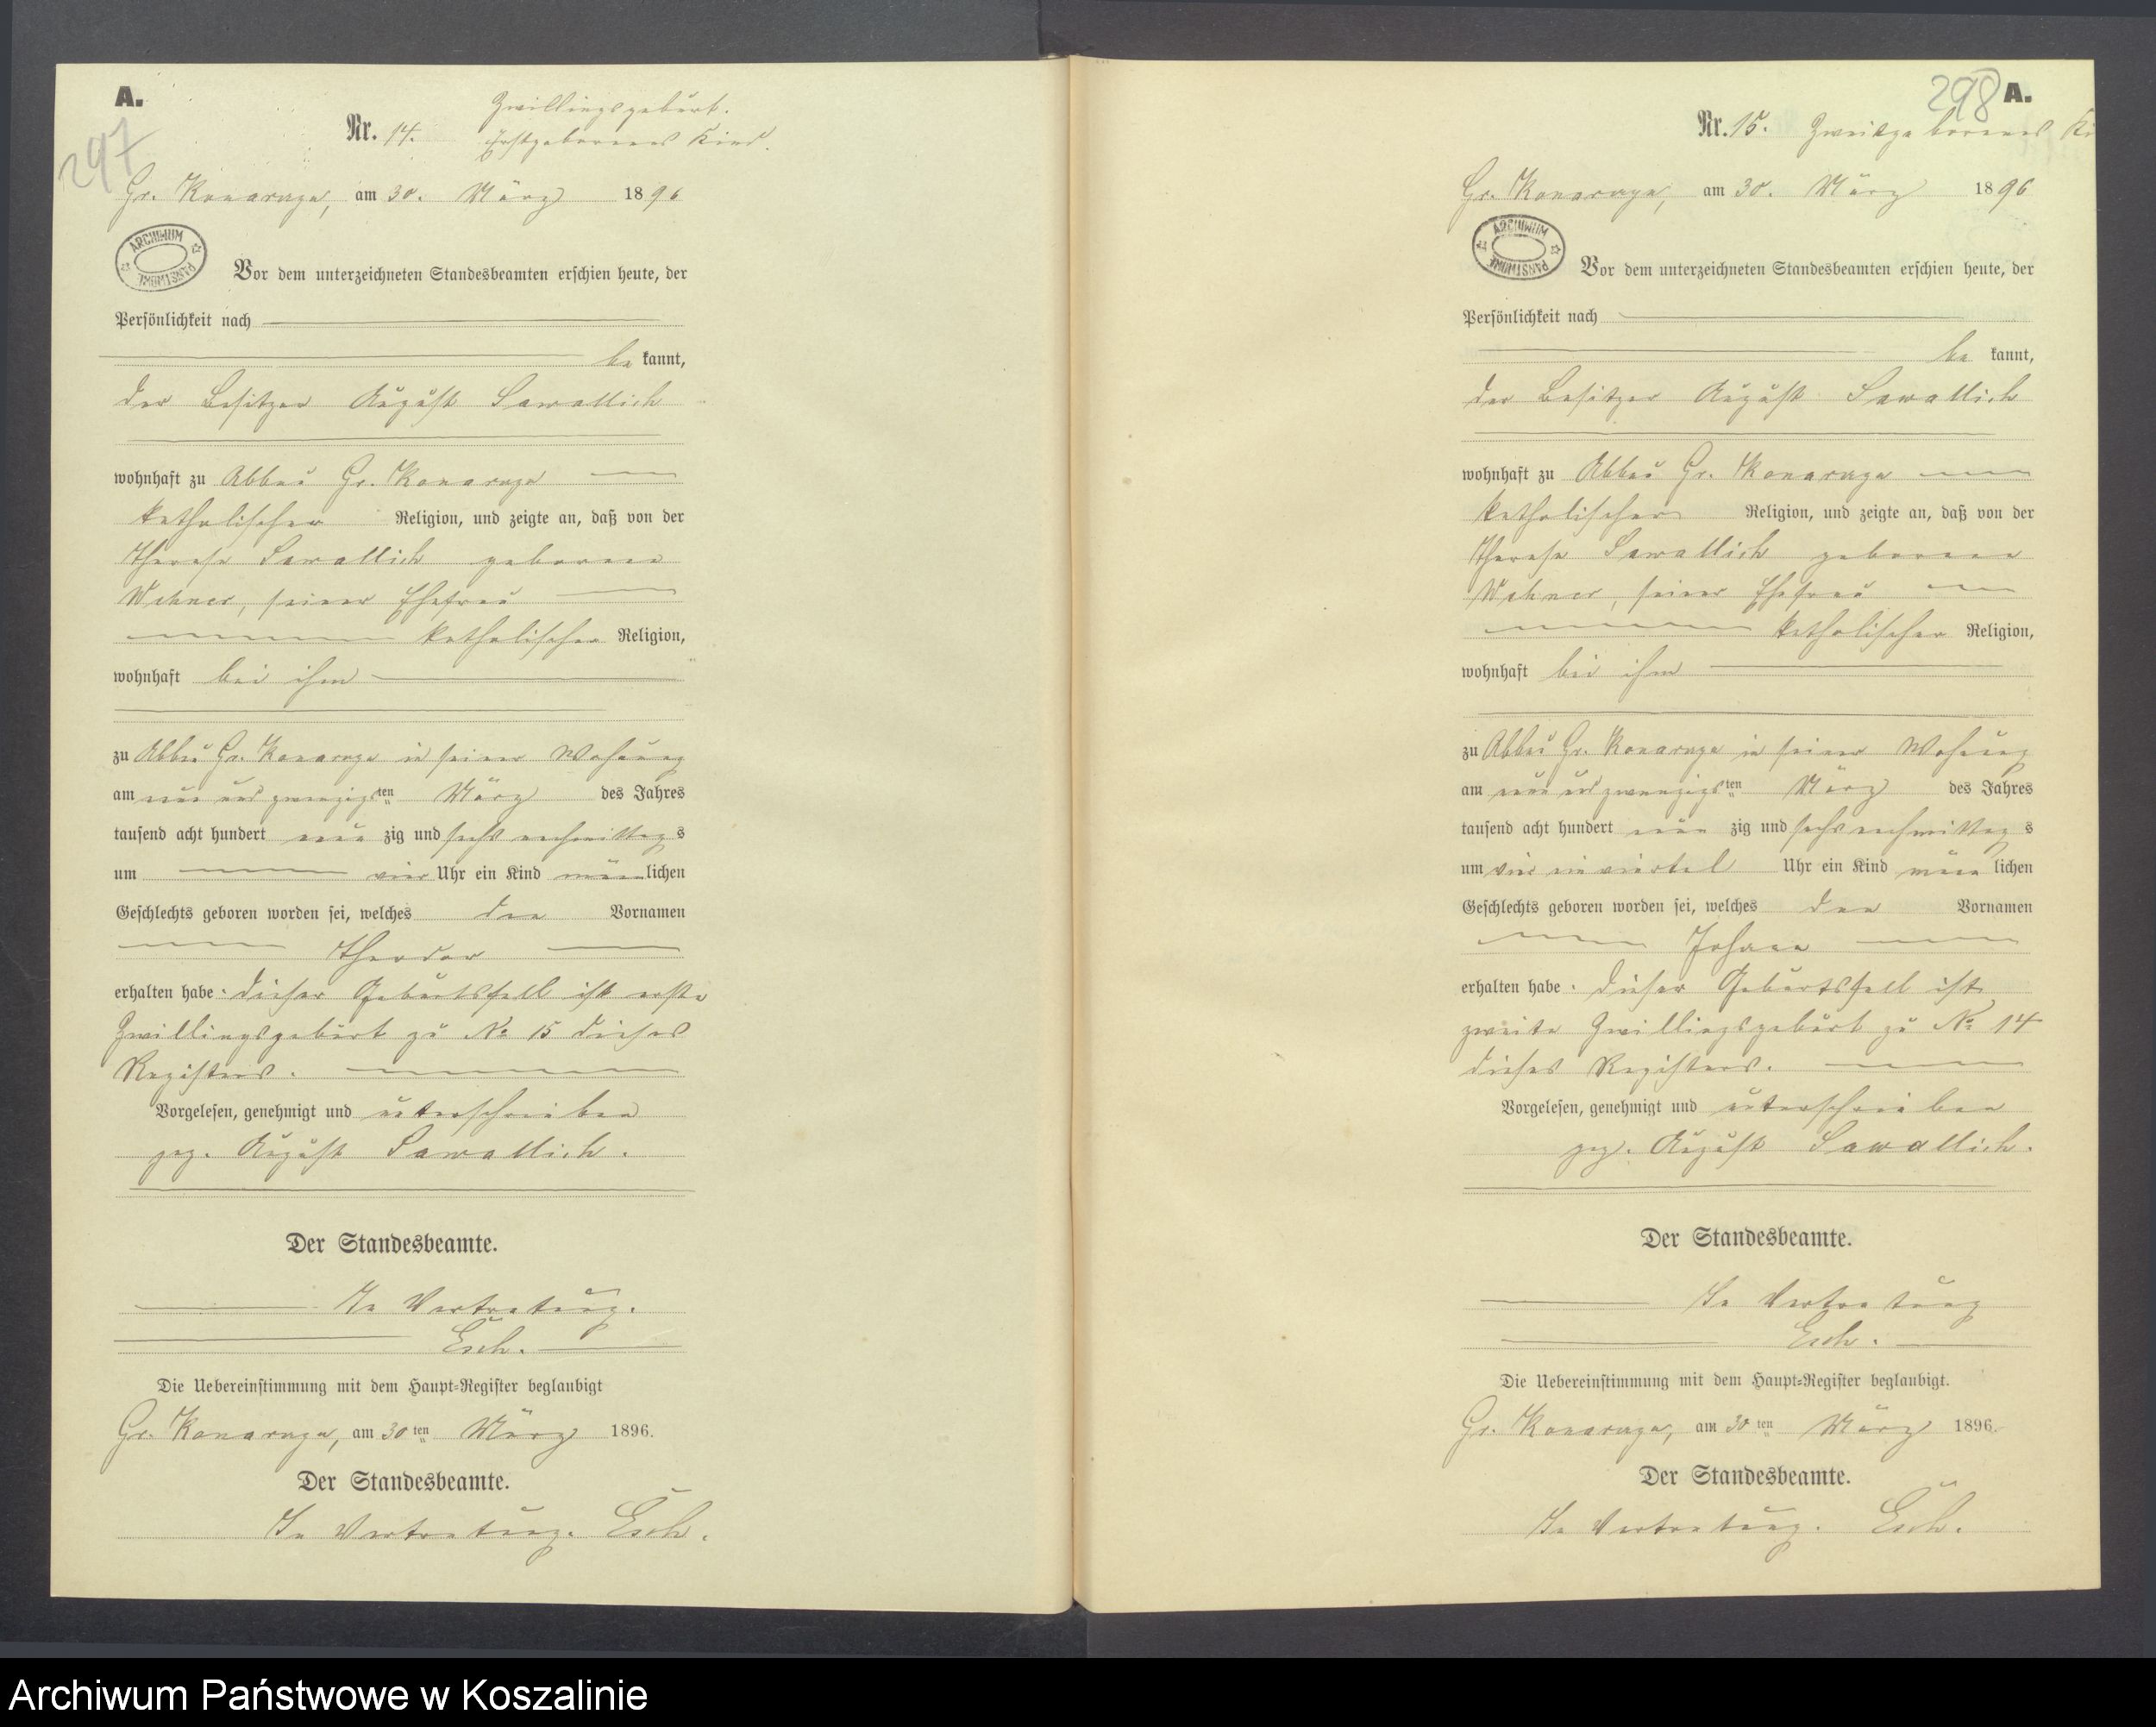 A.
297
Zwillingsgeburt.
Nr. 14. Erstgeborenes Kind.
Gr. Konarzyn, am 30. März 1896
ARCHIWUM PAŃSTWOWE
Vor dem unterzeichneten Standesbeamten erschien heute, der
Persönlichkeit nach
be kannt,
der Besitzer August Sawallich
wohnhaft zu Abbau Gr. Konarzyn
katholischer Religion, und zeigte an, daß von der
Therese Sawallich geborene
Wehner, seiner Ehefrau
katholischer Religion,
wohnhaft bei ihm
zu Abbau Gr. Konarzyn in seiner Wohnung
am neun und zwanzigsten März des Jahres
tausend acht hundert neun zig und sechs nachmittags
um vier Uhr ein Kind männlichen
Geschlechts geboren worden sei, welches den Vornamen
Theodor
erhalten habe. Dieser Geburtsfall ist erste
Zwillingsgeburt zu No 15 dieses
Registers.
Vorgelesen, genehmigt und unterschrieben
gez. August Sawallich.
Der Standesbeamte.
In Vertretung.
Esch.
Die Uebereinstimmung mit dem Haupt-Register beglaubigt
Gr. Konarzyn, am 30ten März 1896.
Der Standesbeamte.
In Vertretung. Esch.
298 A.
Nr. 15. Zweitgeborenes Ki
Gr. Konarzyn, am 30. März 1896
ARCHIWUM PAŃSTWOWE
Vor dem unterzeichneten Standesbeamten erschien heute, der
Persönlichkeit nach
be kannt,
der Besitzer August Sawallich
wohnhaft zu Abbau Gr. Konarzyn
katholischer Religion, und zeigte an, daß von der
Therese Sawallich geborene
Wehner, seiner Ehefrau
katholischer Religion,
wohnhaft bei ihm
zu Abbau Gr. Konarzyn in seiner Wohnung
am neun und zwanzigsten März des Jahres
tausend acht hundert neun zig und sechs nachmittags
um vier ein viertel Uhr ein Kind männlichen
Geschlechts geboren worden sei, welches den Vornamen
Johann
erhalten habe. Dieser Geburtsfall ist
zweite Zwillingsgeburt zu No 14
dieses Registers.
Vorgelesen, genehmigt und unterschrieben
gez. August Sawallich.
Der Standesbeamte.
In Vertretung
Esch.
Die Uebereinstimmung mit dem Haupt-Register beglaubigt.
Gr. Konarzyn, am 30ten März 1896.
Der Standesbeamte.
In Vertretung. Esch.
Archiwum Państwowe w Koszalinie